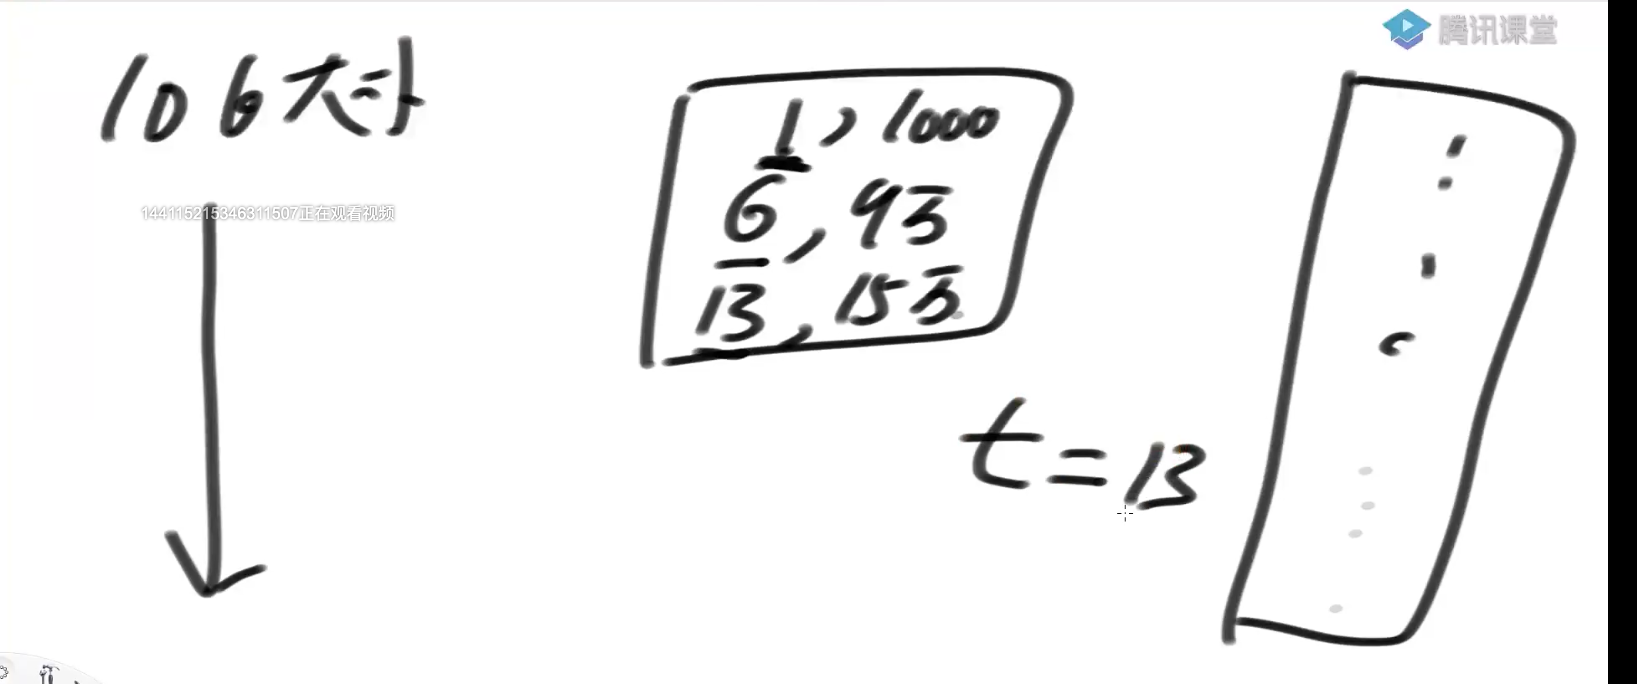 106大叶
144115215346311507正在观看视频
1, 1000
6, 93
13, 153
t=13
腾讯课堂